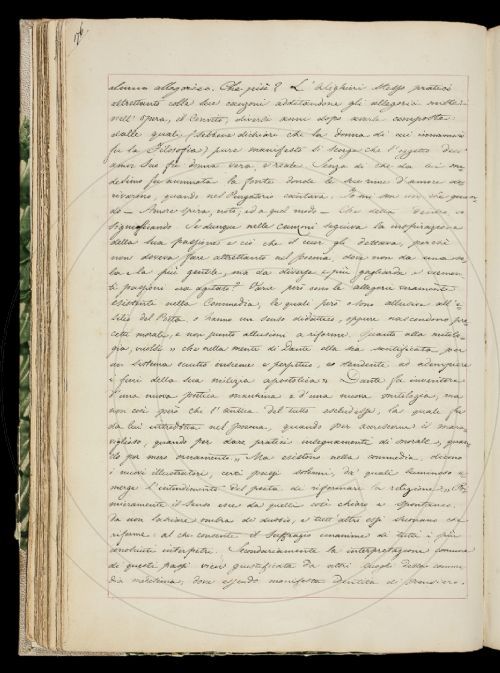 76
alcuna allegorica. Che più? L'Alighieri stesso praticò
altrettanto colle sue canzoni additandone gli allegorici
nell'opera, il Convito, diversi anni dopo averle composte
dalle quali (sebbene dichiari che la donna di cui innamorò
fu la Filosofia) pure manifesto si scorge che l'oggetto dell'
amor suo fu donna vera e reale. Senza di che da lui me-
desimo fu annunziata la fonte donde le sue rime d'amore de-
rivarono, quando nel Purgatorio cantava. Io mi son un che quan-
do — Amore spira, noto, ed a quel modo — Che detta dentro, vo
significando. Se dunque nelle canzoni seguiva la inspirazione
della sua passione e ciò che il cuor gli dettava, perchè
non doveva fare altrettanto nel poema, dove non da una so-
la e la più gentile, ma da diverse e più gagliarde e
ti passioni era agitato? Pure però sono le allegorie veramente
esistente nella Commedia, le quali però o sono allusive all'e-
silio del Poeta o hanno un senso didattico, oppure nascondono pre-
cetti morali, e non punto allusioni a riforme. Quanto alla mitolo-
gia, vuolsi » che nella mente di Dante ella sia santificata per
un sistema scritto insieme e perfetto, e tendente ad adempiere
i fini della sua milizia apostolica » Dante fu inventore
d'una nuova poetica macchina e d'una nuova mitologia, ma
non così però che l'antica del tutto escludesse, la quale fu
da lui introdotta nel poema, quando per accrescere il mara-
viglioso, quando per dare pratici insegnamenti di morale, quan-
do per mero ornamento » Ma esistono nella commedia, dicono
i nuovi illustratori, certi passi solenni, da' quali luminoso e-
merge l'intendimento del poeta di riformare la religione: » Pri-
mieramente il senso esce da quelli così chiaro e spontaneo
da non lasciare ombra di dubbio, e tutt'altro essi suonano che
riforma: al che consente il suffragio unanime di tutti i più
interpreti. Secondariamente la interpretazione comune
di questi passi vien giustificata da altri luoghi della comme-
dia medesima, dove essendo manifesta identità di pensiero.